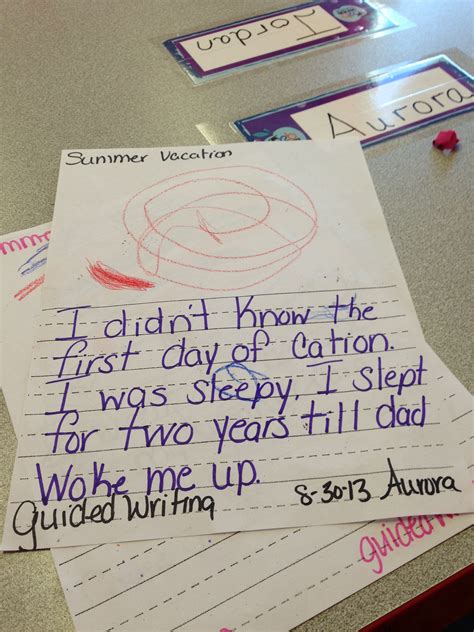 Jordan
Aurora
Summer Vacation
I didn't know the
first day of Cation.
I was sleepy, I slept
for two years till dad
Woke me up.
Guided Writing
8-30-13 Aurora